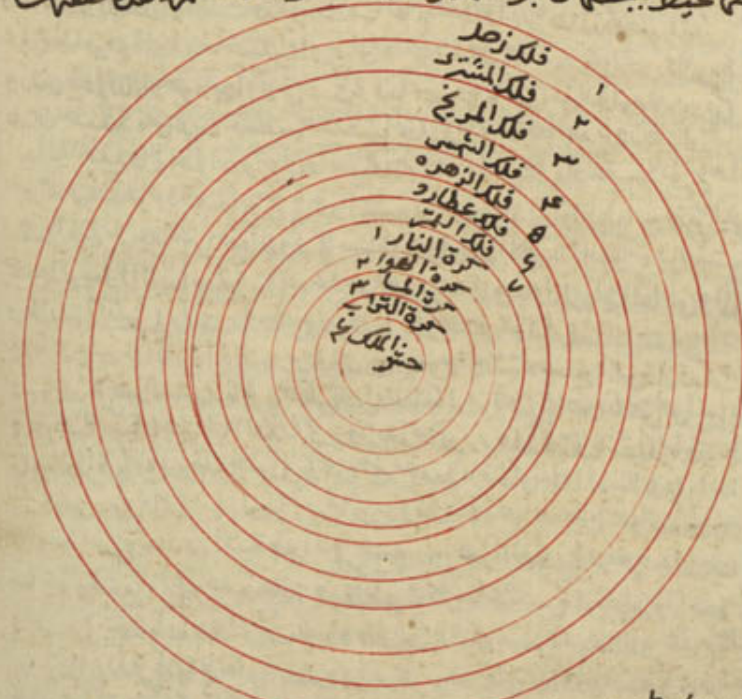 فلك زحل ١
فلك المشترى ٢
فلك المريخ ٣
فلك الشمس ۴
فلك الزهره ۵
فلك عطارد ۶
فلك القمر ٧
كرة النار ١
كرة الهوا ٢
كرة الما ٣
كرة التراب